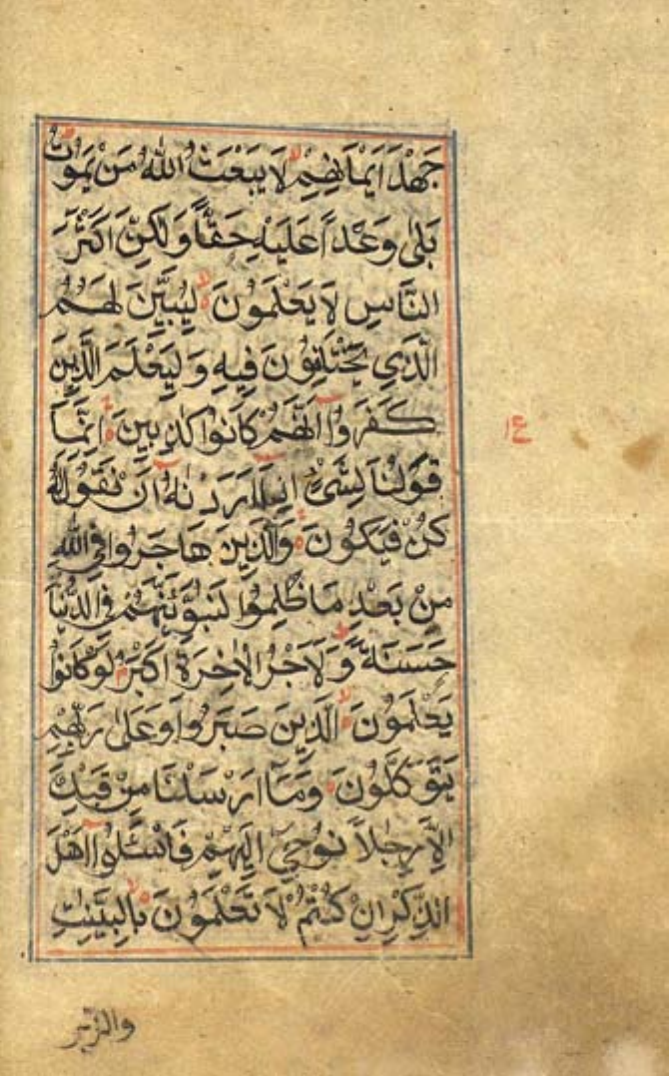 جَهْدَ اَیْمَانِهِمْ لَا یَبْعَثُ اللّٰهُ مَنْ یَمُوْتُ
بَلٰی وَعْدًا عَلَیْهِ حَقًّا وَّلٰكِنَّ اَكْثَرَ
النَّاسِ لَا یَعْلَمُوْنَ لِیُبَیِّنَ لَهُمُ
الَّذِی یَخْتَلِفُوْنَ فِیْهِ وَلِیَعْلَمَ الَّذِیْنَ
كَفَرُوْا اَنَّهُمْ كَانُوْا كٰذِبِیْنَ اِنَّمَا
قَوْلُنَا لِشَیْءٍ اِذَا اَرَدْنٰهُ اَنْ نَّقُوْلَ لَهٗ
كُنْ فَیَكُوْنُ وَالَّذِیْنَ هَاجَرُوْا فِی اللّٰهِ
مِنْ بَعْدِ مَا ظُلِمُوْا لَنُبَوِّئَنَّهُمْ فِی الدُّنْیَا
حَسَنَةً وَّلَاَجْرُ الْاٰخِرَةِ اَكْبَرُ لَوْ كَانُوْا
یَعْلَمُوْنَ الَّذِیْنَ صَبَرُوْا وَعَلٰی رَبِّهِمْ
یَتَوَكَّلُوْنَ وَمَا اَرْسَلْنَا مِنْ قَبْلِكَ
اِلَّا رِجَالًا نُّوْحِیْ اِلَیْهِمْ فَاسْئَلُوْا اَهْلَ
الذِّكْرِ اِنْ كُنْتُمْ لَا تَعْلَمُوْنَ بِالْبَیِّنٰتِ
والزبر